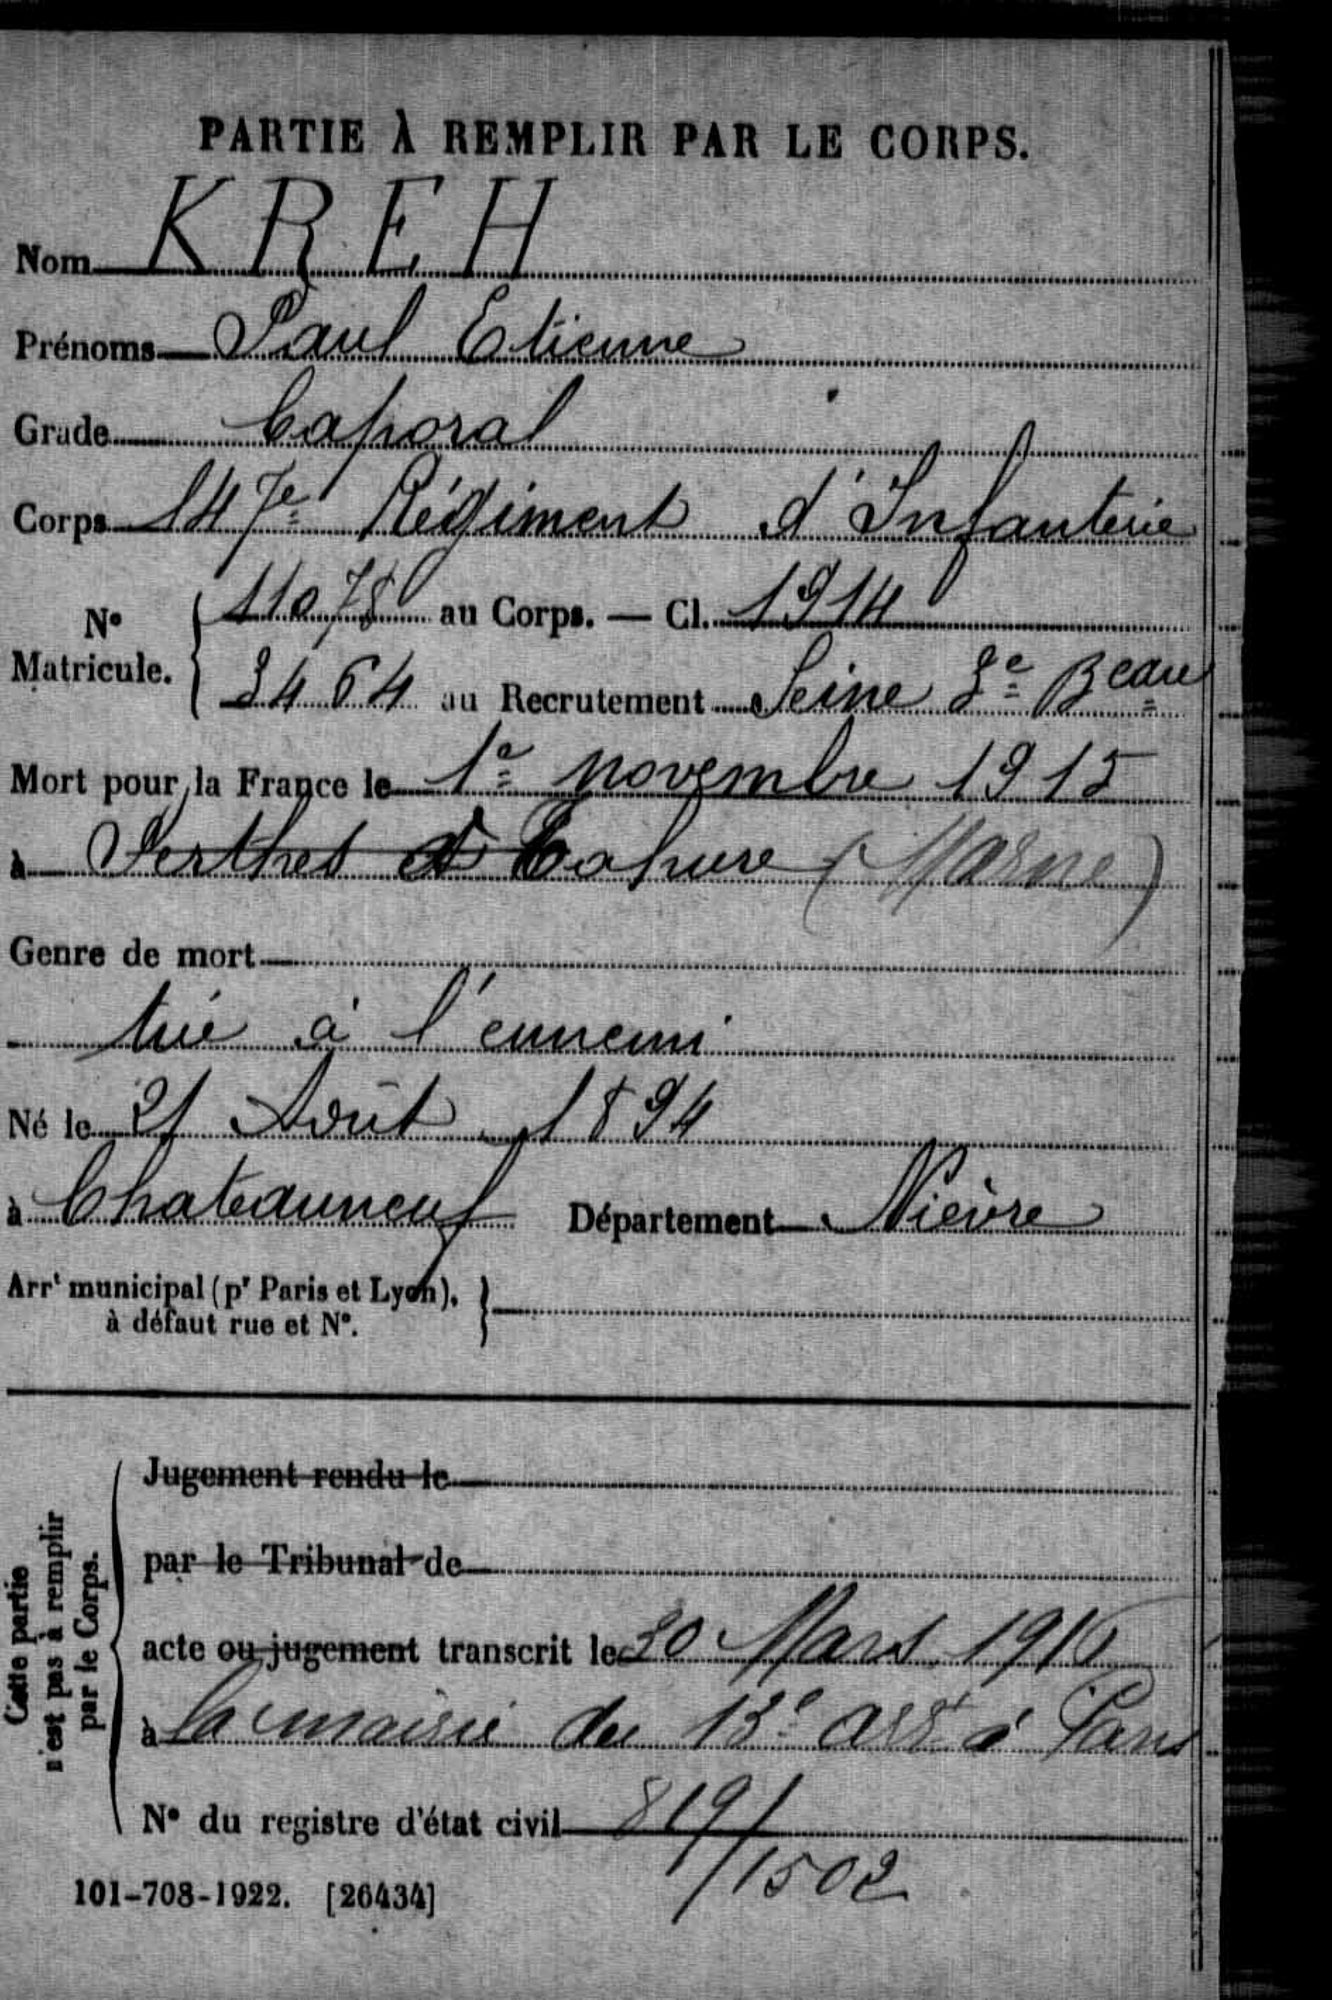 PARTIE À REMPLIR PAR LE CORPS.
Nom KREH
Prénoms Paul Etienne
Grade Caporal
Corps 147e Régiment d'Infanterie
No Matricule. { 11078 au Corps. — Cl. 1914
3464 au Recrutement Seine 3e Beau
Mort pour la France le 1e novembre 1915
à Perthes et Tahure (Marne)
Genre de mort
tué à l'ennemi
Né le 21 Août 1894
à Chateauneuf Département Nièvre
Arrt municipal (pr Paris et Lyon), à défaut rue et No.
Cette partie n'est pas à remplir par le Corps.
Jugement rendu le
par le Tribunal de
acte ou jugement transcrit le 30 Mars 1916
à la mairie du 13e arrt à Paris
No du registre d'état civil 819/1502
101-708-1922. [26434]